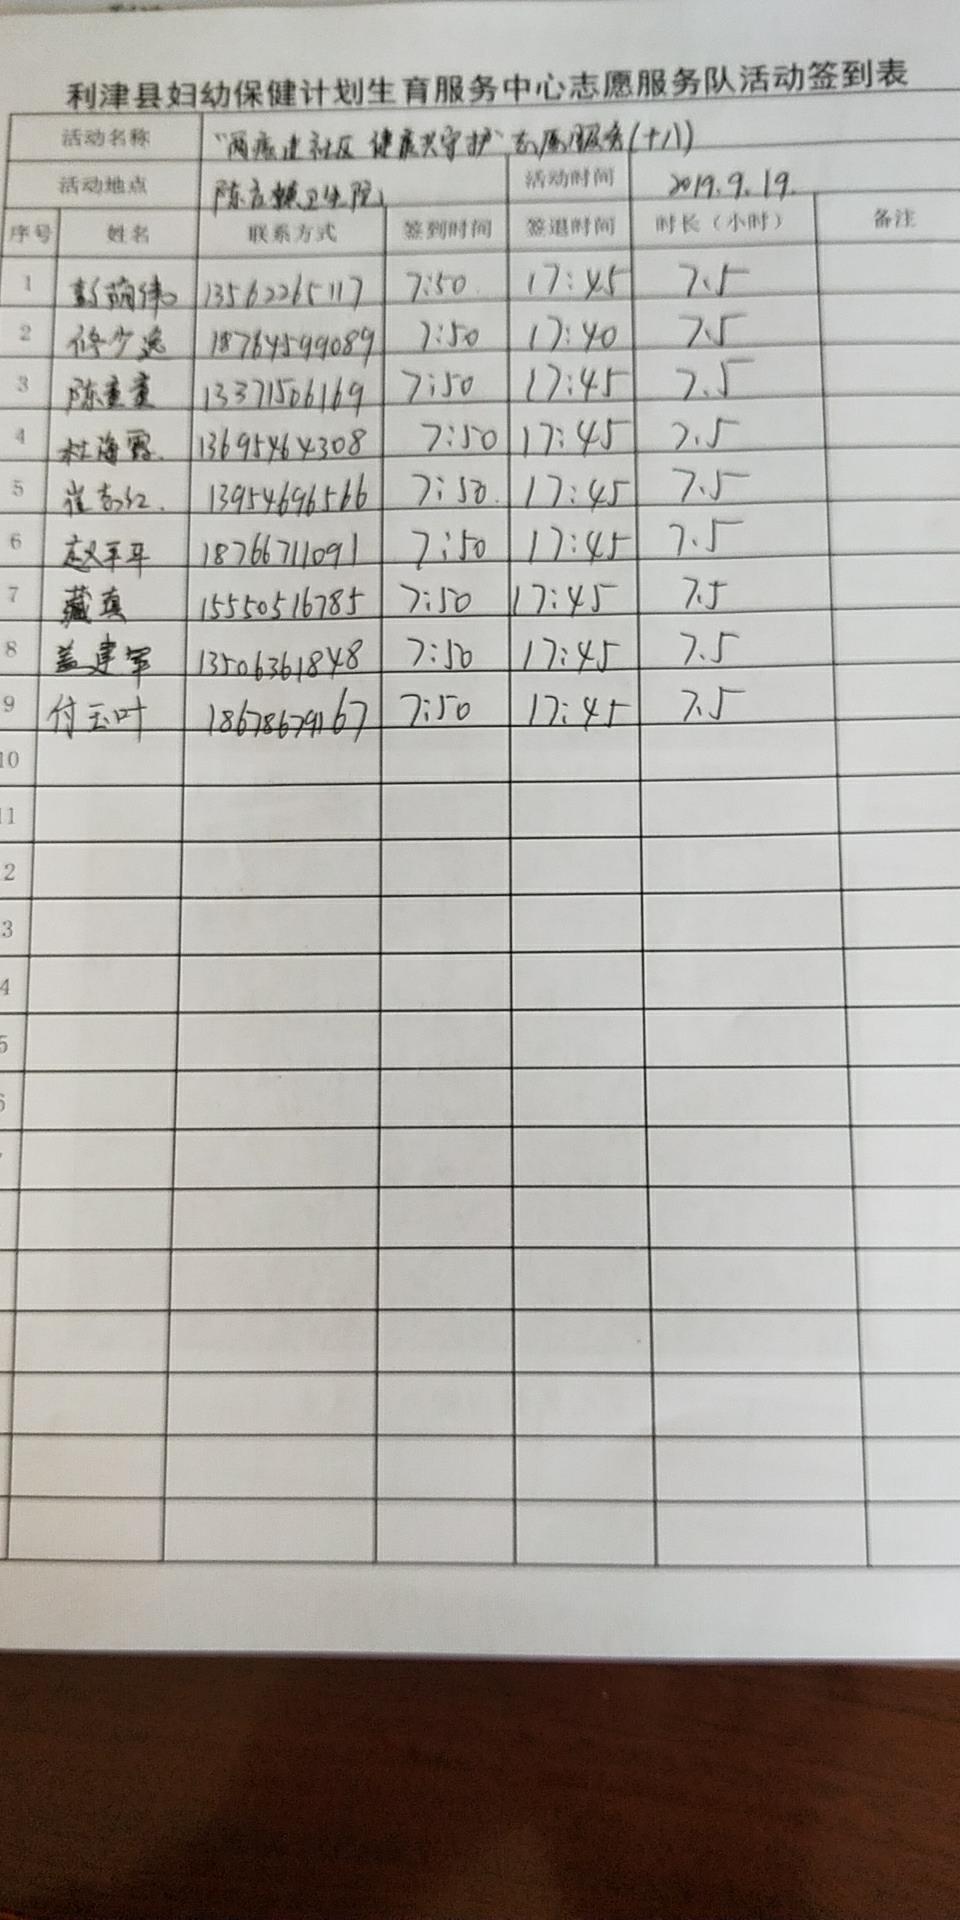 利津县妇幼保健计划生育服务中心志愿服务队活动签到表
活动名称 "两癌进社区 健康共守护"志愿服务(十八)
活动地点 陈庄镇卫生院 活动时间 2019.9.19.
序号 姓名 联系方式 签到时间 签退时间 时长（小时） 备注
1 13562265117 7:50 17:45 7.5
2 徐少逸 18764599089 7:50 17:40 7.5
3 陈重重 13371506169 7:50 17:45 7.5
4 杜海霞. 13695464308 7:50 17:45 7.5
5 崔志红. 13954696566 7:50. 17:45 7.5
6 赵平平 18766711091 7:50 17:45 7.5
7 藏真 15550516785 7:50 17:45 7.5
8 盖建军 13506361848 7:50 17:45 7.5
9 付玉叶 18678679167 7:50 17:45 7.5
10
11
2
3
4
5
6